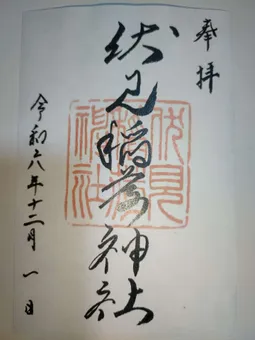 奉拝
伏見稲荷神社
令和六年十二月一日
伏見
神社